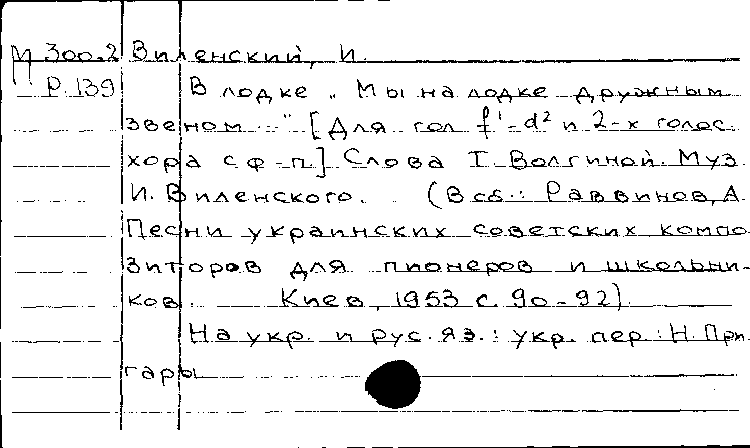 М 300.2 Виленский, И.
Р.139 В лодке „Мы на лодке дружным
звеном..." [Для гол f'-d² и 2-х голос.
хора с ф-п.] Слова Т. Волгиной. Муз.
И. Виленского. (В сб.: Раввинов, А.
Песни украинских советских компо
зиторов для пионеров и школьни-
ков. Киев, 1953 с. 90-92).
На укр. и рус. яз.: укр. пер.: Н. При
гары